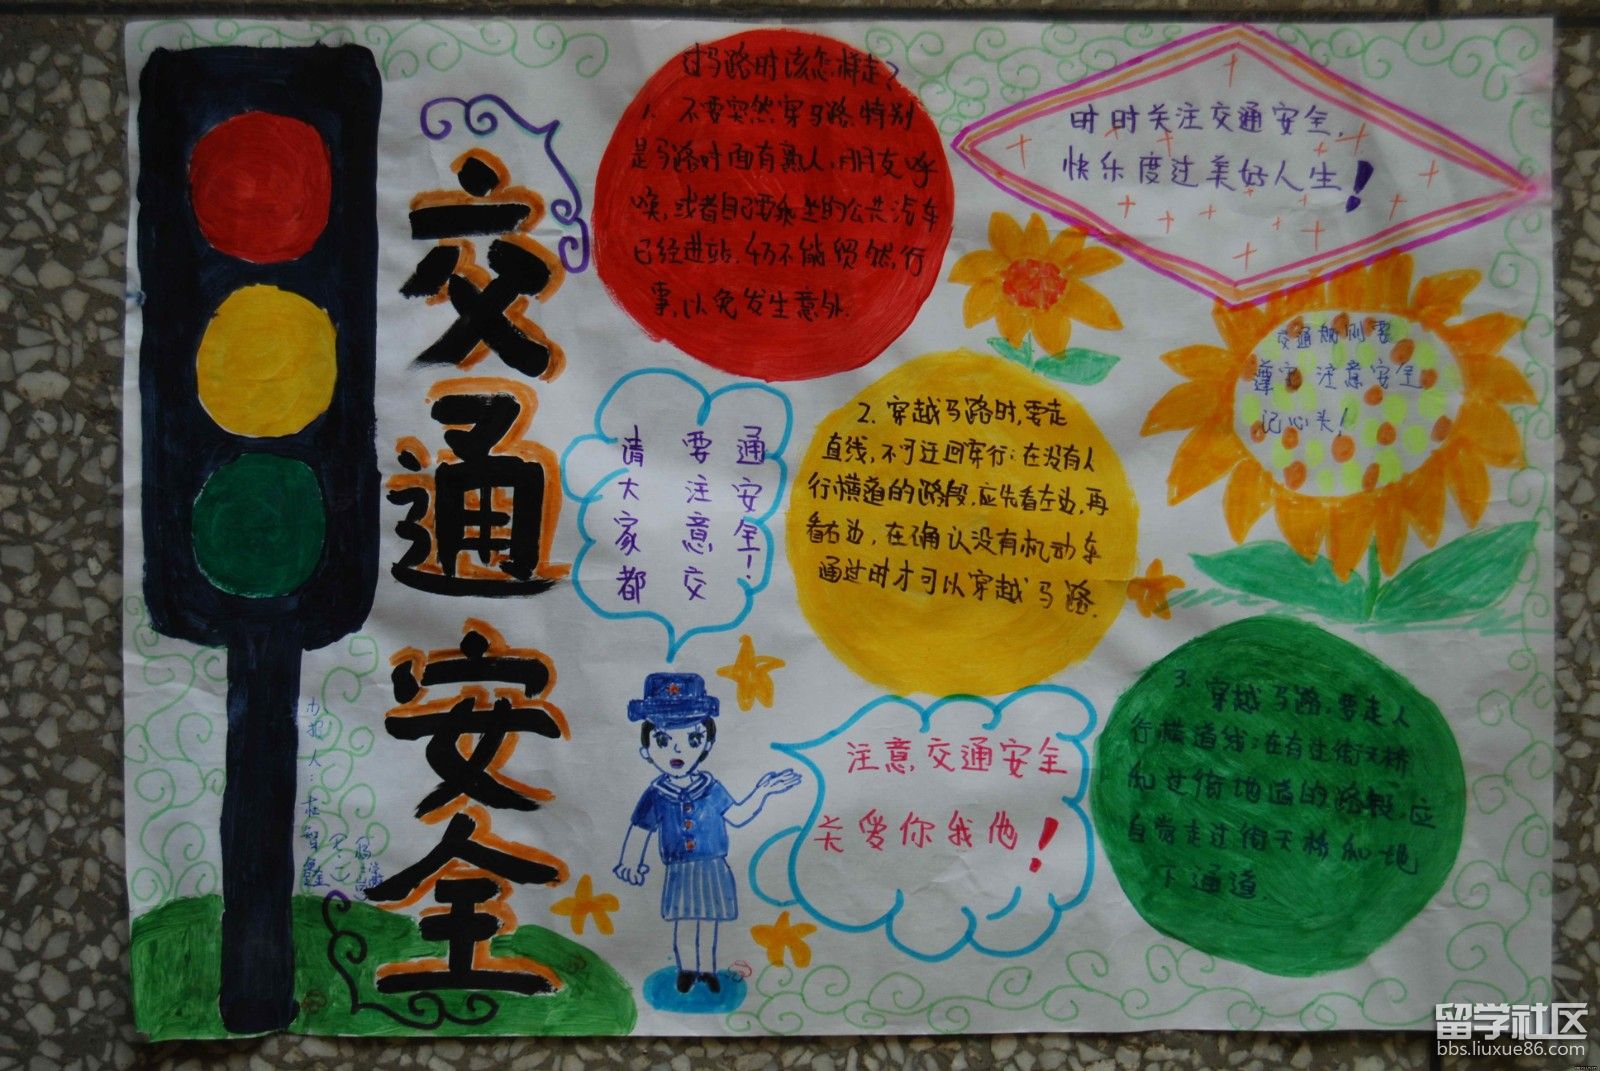 交通安全
过马路时该怎样走？
1、不要突然穿马路,特别
是马路对面有熟人,朋友呼
唤,或者自己要乘坐的公共汽车
已经进站,仍不能贸然行
事,以免发生意外.
时时关注交通安全,
快乐度过美好人生！
交通规则要
遵守 注意安全
记心头！
请大家都
要注意交
通安全！
2.穿越马路时,要走
直线,不可迂回穿行;在没有人
行横道的路段,应先看左边,再
看右边,在确认没有机动车
通过时才可以穿越马路.
注意交通安全
关爱你我他！
3.穿越马路,要走人
行横道线;在有过街天桥
和过街地道的路段,应
自觉走过街天桥和地
下通道.
办报人:杜智鑫
留学社区
bbs.liuxue86.com